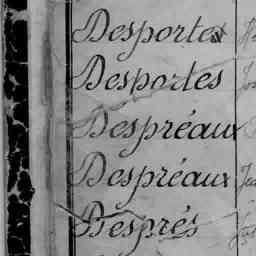 Desportes
Desportes
Despréaux
Despréaux
Després